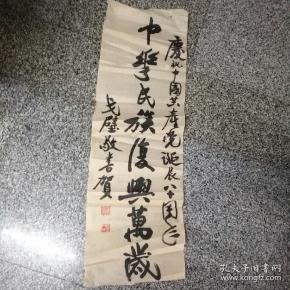 慶祝中國共產党诞辰八十周年
中華民族復興萬歲
戈壁敬書賀
孔夫子旧书网